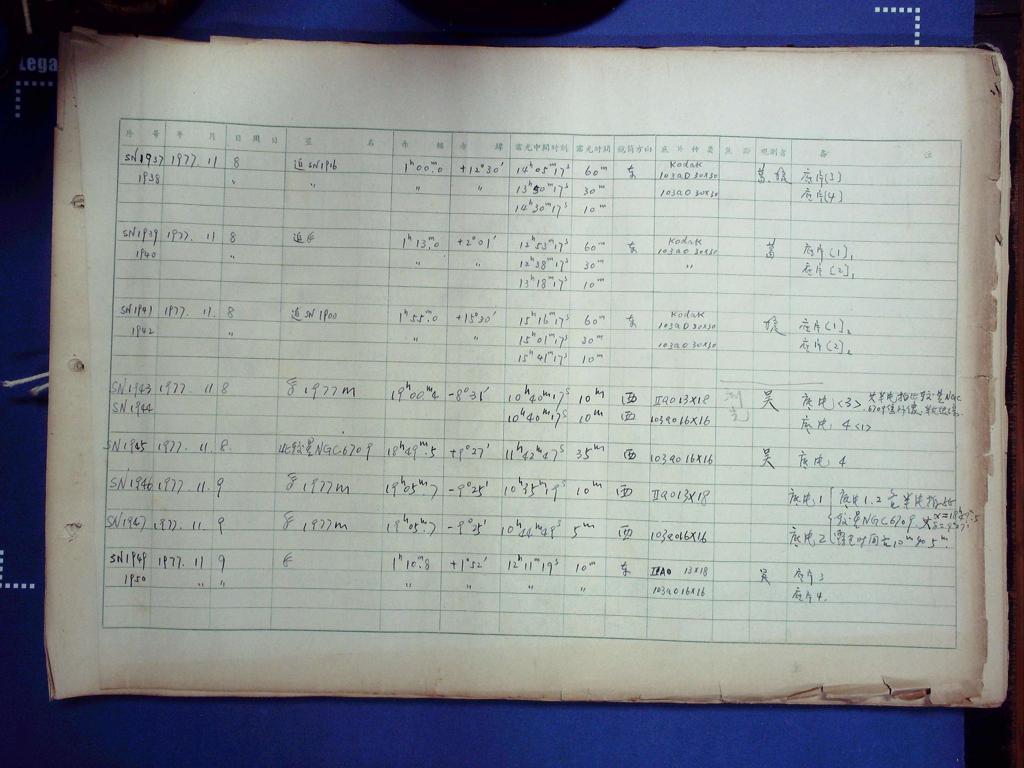 Lega
序 号 年 月 日 周 日 星 名 赤 經 赤 緯 露光中間时刻 露光时间 鏡筒方向 底 片 种 类 观测者 备 註
SN1937 1977. 11 8 近SN1916 1ʰ00ᵐ.0 +12°30′ 14ʰ05ᵐ17ˢ 60ᵐ 东 Kodak 103aD 30x30 底片(3)
1938 〃 〃 〃 〃 13ʰ50ᵐ17ˢ 30ᵐ 103a0 30x30 底片(4)
14ʰ30ᵐ17ˢ 10ᵐ
SN1939 1977. 11 8 1ʰ13ᵐ.0 +2°01′ 12ʰ53ᵐ17ˢ 60ᵐ 东 Kodak 103a0 30x30 底片(1)₁
1940 〃 〃 〃 12ʰ38ᵐ17ˢ 30ᵐ 〃 底片(2)₁
13ʰ18ᵐ17ˢ 10ᵐ
SN1941 1977. 11. 8 近SN1900 1ʰ55ᵐ.0 +15°30′ 15ʰ16ᵐ17ˢ 60ᵐ 东 Kodak 103aD 30x30 底片(1)₂
1942 〃 15ʰ01ᵐ17ˢ 30ᵐ 103a0 30x30 底片(2)₂
15ʰ41ᵐ17ˢ 10ᵐ
SN1943 1977. 11 8 1977m 19ʰ00ᵐ.4 -8°31′ 10ʰ40ᵐ17ˢ 10ᵐ 西 IIa0 13X18 吴 底片<3>
SN1944 10ʰ40ᵐ17ˢ 10ᵐ 西 103a0 16X16 底片 4<1>
SN1945 1977. 11. 8. 比较星NGC6709 18ʰ49ᵐ.5 +9°27′ 11ʰ42ᵐ47ˢ 35ᵐ 西 103a0 16X16 吴 底片 4
SN1946 1977. 11. 9 1977m 19ʰ05ᵐ.7 -9°25′ 10ʰ35ᵐ19ˢ 10ᵐ 西 IIa0 13X18 底片.1
较星NGC6709
SN1947 1977. 11. 9 1977m 19ʰ05ᵐ.7 -9°25′ 10ʰ44ᵐ49ˢ 5ᵐ 西 103a0 16X16 底片 2
SN1949 1977. 11 9 1ʰ10ᵐ.8 +1°52′ 12ʰ11ᵐ19ˢ 10ᵐ 东 IIA0 13X18 吴 底片 3
1950 〃 〃 〃 〃 〃 〃 103a0 16X16 底片 4.